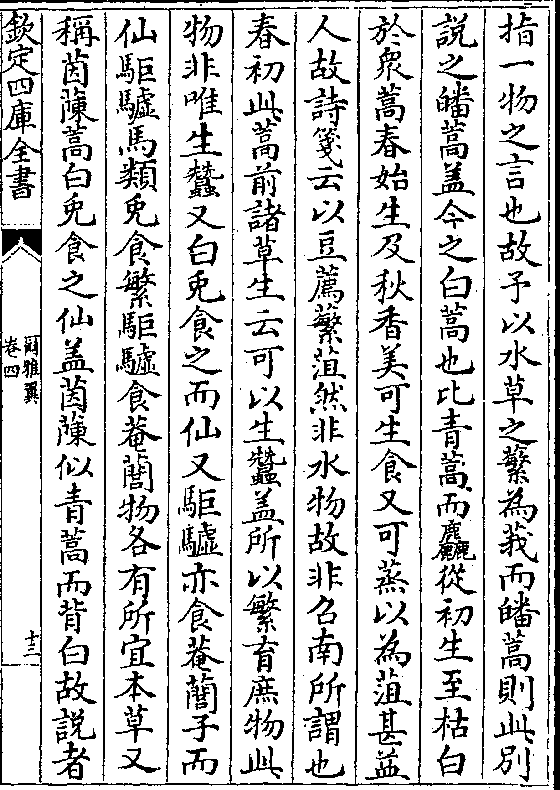 指一物之言也故予以水草之蘩為莪而皤蒿則此别
說之皤蒿盖今之白蒿也比青蒿而麤從初生至枯白
於衆蒿春始生及秋香美可生食又可蒸以為菹甚益
人故詩箋云以豆薦蘩菹然非水物故非召南所謂也
春初此蒿前諸草生云可以生蠶盖所以繁育庶物此
物非唯生蠶又白兎食之而仙又駏驉亦食菴䕡子而
仙駏驉馬類兎食繁駏驉食菴䕡物各有所宜本草又
稱茵蔯蒿白兎食之仙盖茵蔯似青蒿而背白故說者
欽定四庫全書
爾雅翼
卷四
十三